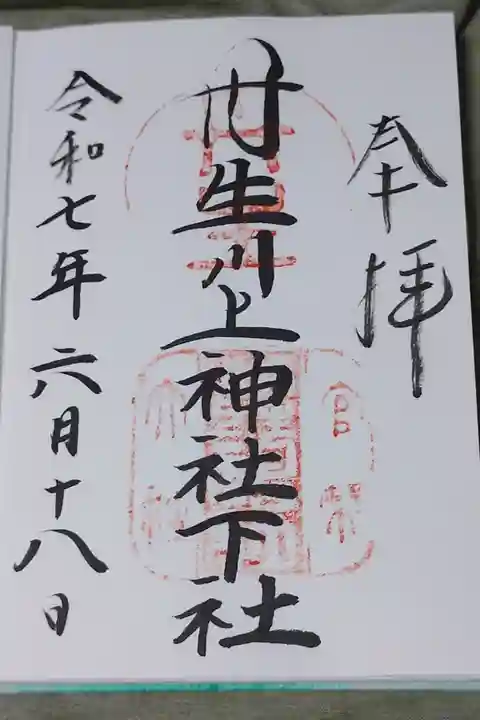 奉拝
丹生川上神社下社
令和七年六月十八日